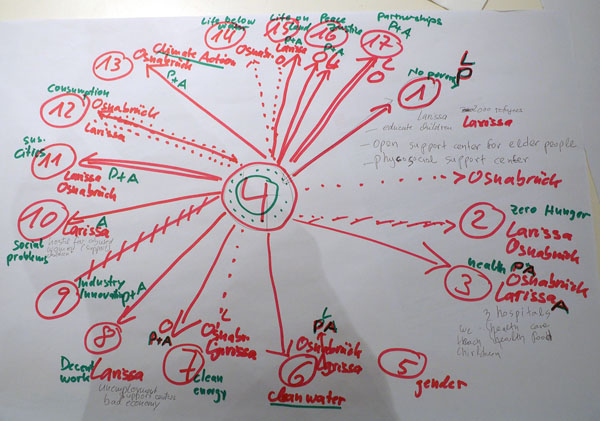 Life below
water
14
Osnabr.
Life on
Land
15
P+A
Larissa
O
Peace
Justice
16
P+A
O
L
partnerships
P+A
17
L
O
13
Climate Action
Osnabrück
P+A
consumption
12
Osnabrück
Larissa
sus.
Cities
11
P+A
Larissa
Osnabrück
10
A
Larissa
social
problems
9
Industry
Innovation
P+A
8
Decent
work
Larissa
unemployment
support centre
bad economy
P+A
O
L
7
clean
energy
Osnabr.
Larissa
L
PA
Osnabrück
Larissa
6
clean water
5
gender
4
1
No poverty
L
P
Larissa
Larissa
— educate children
— open support center for elder people
— phycosocial support center
Osnabrück
2
zero Hunger
Larissa
Osnabrück
3
health
PA
Osnabrück
Larissa
A
3 hospitals
health care
teach health food
children